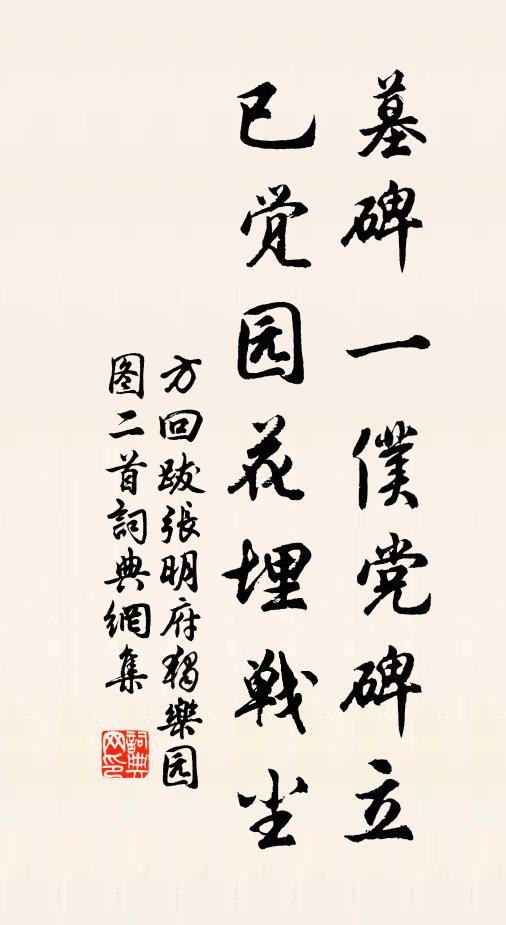 墓碑一僕党碑立
已觉园花埋戦尘
方回跋張明府独樂园
图二首詞典網集
詞典网印